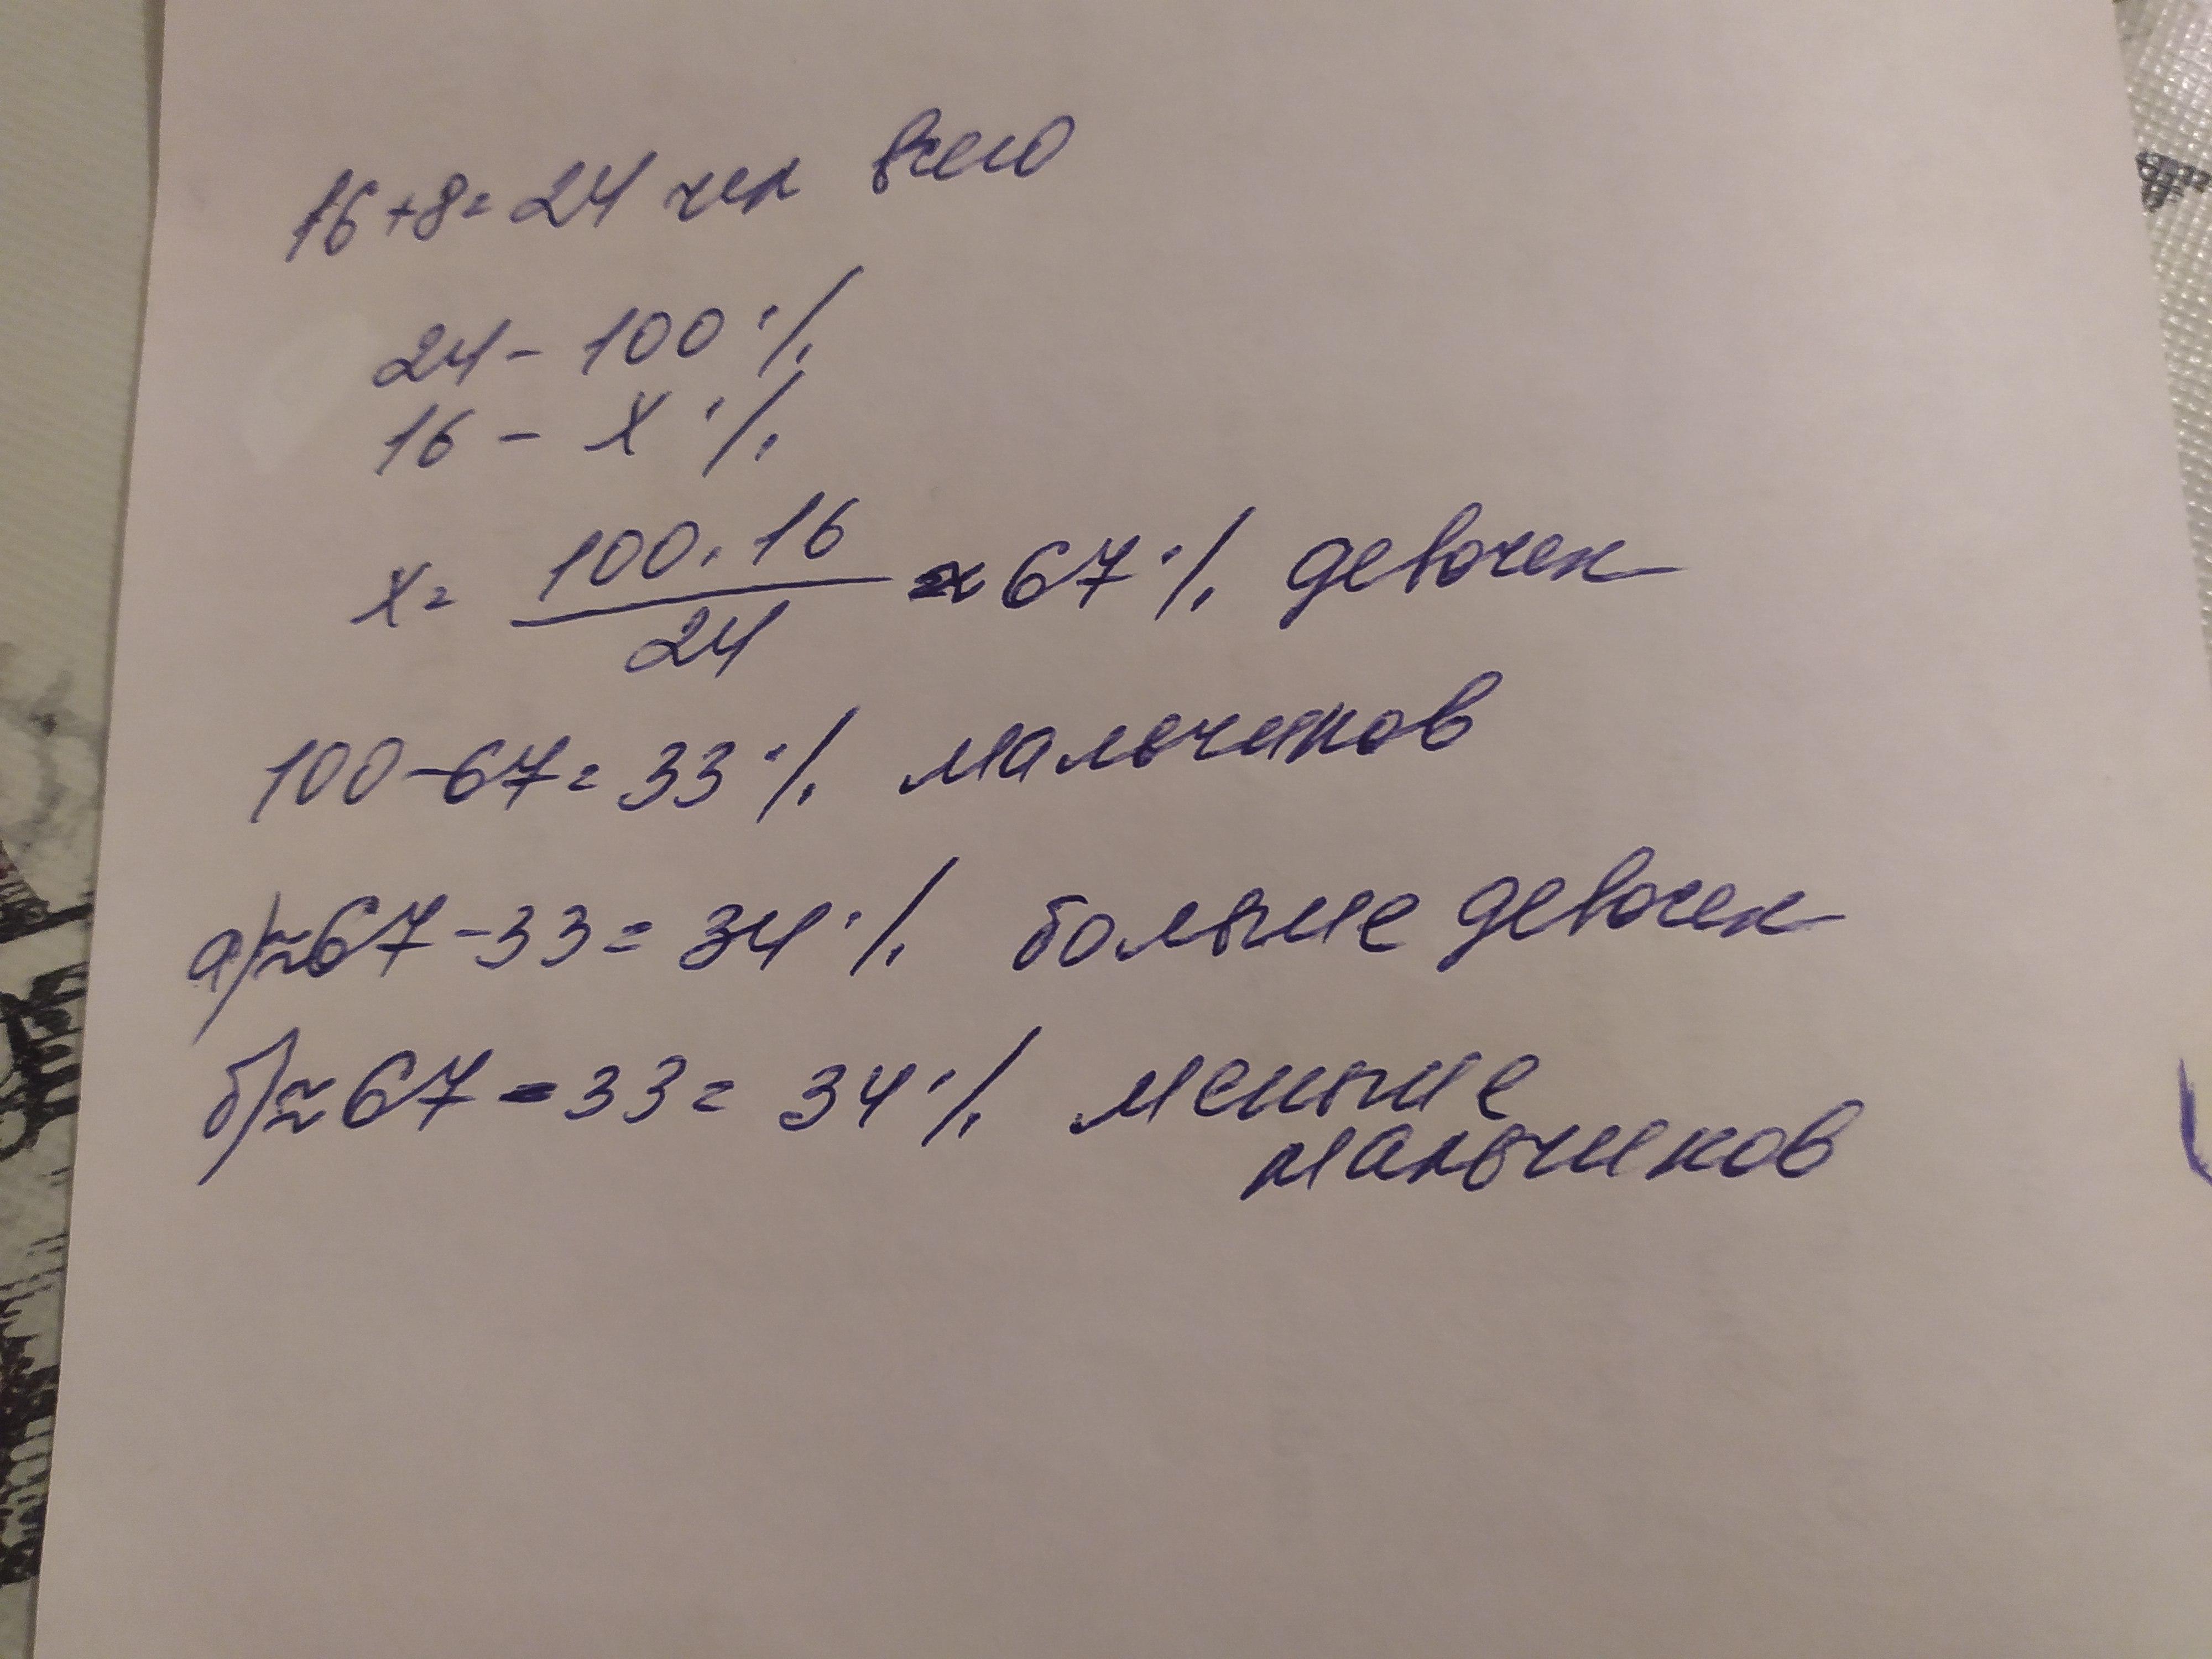 16+8=24 чел всего
24 - 100%
16 - х%
х= 100·16 / 24 ≈ 67% девочек
100-67=33% мальчиков
а) ≈67-33=34% больше девочек
б) ≈67-33=34% меньше
мальчиков